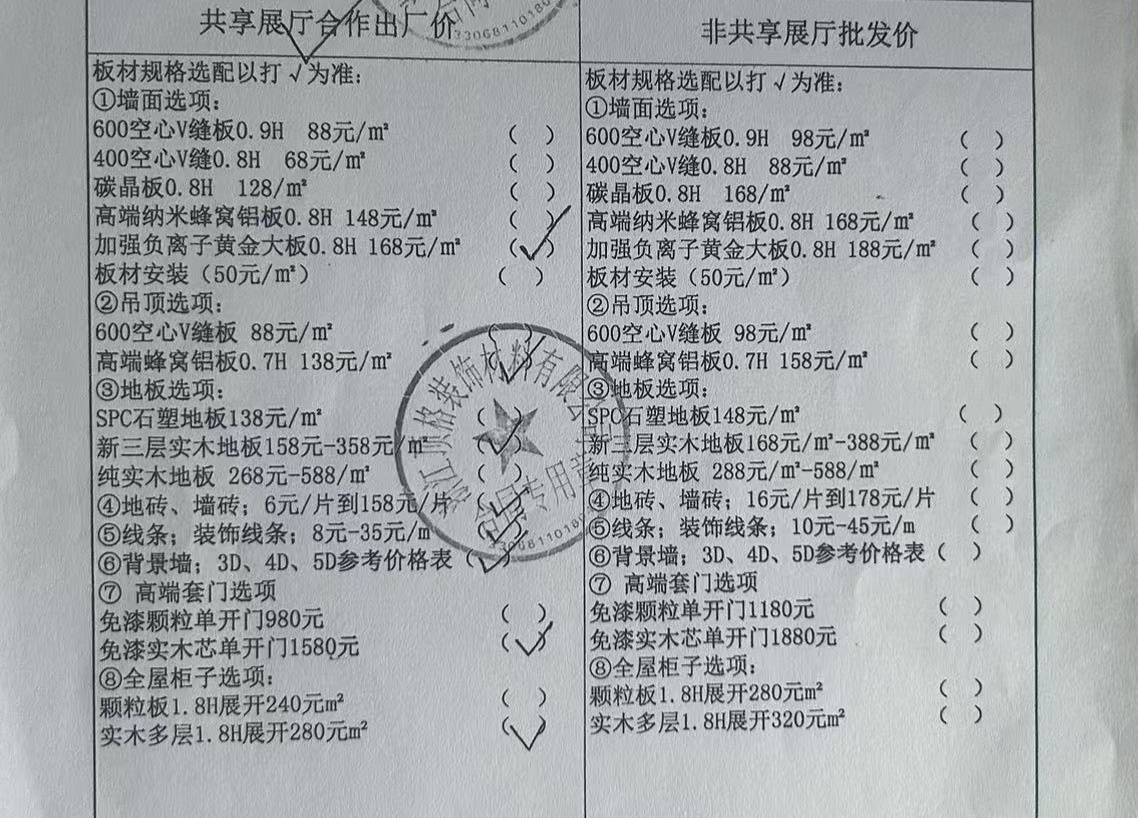 共享展厅合作出厂价
板材规格选配以打√为准:
①墙面选项:
600空心V缝板0.9H 88元/㎡ ( )
400空心V缝0.8H 68元/㎡ ( )
碳晶板0.8H 128/㎡ ( )
高端纳米蜂窝铝板0.8H 148元/㎡ ( )
加强负离子黄金大板0.8H 168元/㎡ (✓)
板材安装(50元/㎡) ( )
②吊顶选项:
600空心V缝板 88元/㎡ ( )
高端蜂窝铝板0.7H 138元/㎡ (✓)
③地板选项:
SPC石塑地板138元/㎡ ( )
新三层实木地板158元-358元/㎡ (✓)
纯实木地板 268元-588/㎡ ( )
④地砖、墙砖; 6元/片到158元/片 (✓)
⑤线条; 装饰线条; 8元-35元/m (✓)
⑥背景墙; 3D、4D、5D参考价格表 (✓)
⑦ 高端套门选项
免漆颗粒单开门980元 ( )
免漆实木芯单开门1580元 (✓)
⑧全屋柜子选项:
颗粒板1.8H展开240元㎡ ( )
实木多层1.8H展开280元㎡ (✓)
非共享展厅批发价
板材规格选配以打√为准:
①墙面选项:
600空心V缝板0.9H 98元/㎡ ( )
400空心V缝0.8H 88元/㎡ ( )
碳晶板0.8H 168/㎡ ( )
高端纳米蜂窝铝板0.8H 168元/㎡ ( )
加强负离子黄金大板0.8H 188元/㎡ ( )
板材安装(50元/㎡) ( )
②吊顶选项:
600空心V缝板 98元/㎡ ( )
高端蜂窝铝板0.7H 158元/㎡ ( )
③地板选项:
SPC石塑地板148元/㎡ ( )
新三层实木地板168元/㎡-388元/㎡ ( )
纯实木地板 288元/㎡-588/㎡ ( )
④地砖、墙砖; 16元/片到178元/片 ( )
⑤线条; 装饰线条; 10元-45元/m ( )
⑥背景墙; 3D、4D、5D参考价格表 ( )
⑦ 高端套门选项
免漆颗粒单开门1180元 ( )
免漆实木芯单开门1880元 ( )
⑧全屋柜子选项:
颗粒板1.8H展开280元㎡ ( )
实木多层1.8H展开320元㎡ ( )
顶格装饰材料有限公司
合同专用章